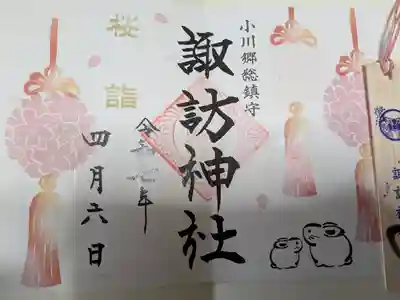 小川郷総鎮守
諏訪神社
桜詣
令和七年
四月六日
諏訪神社